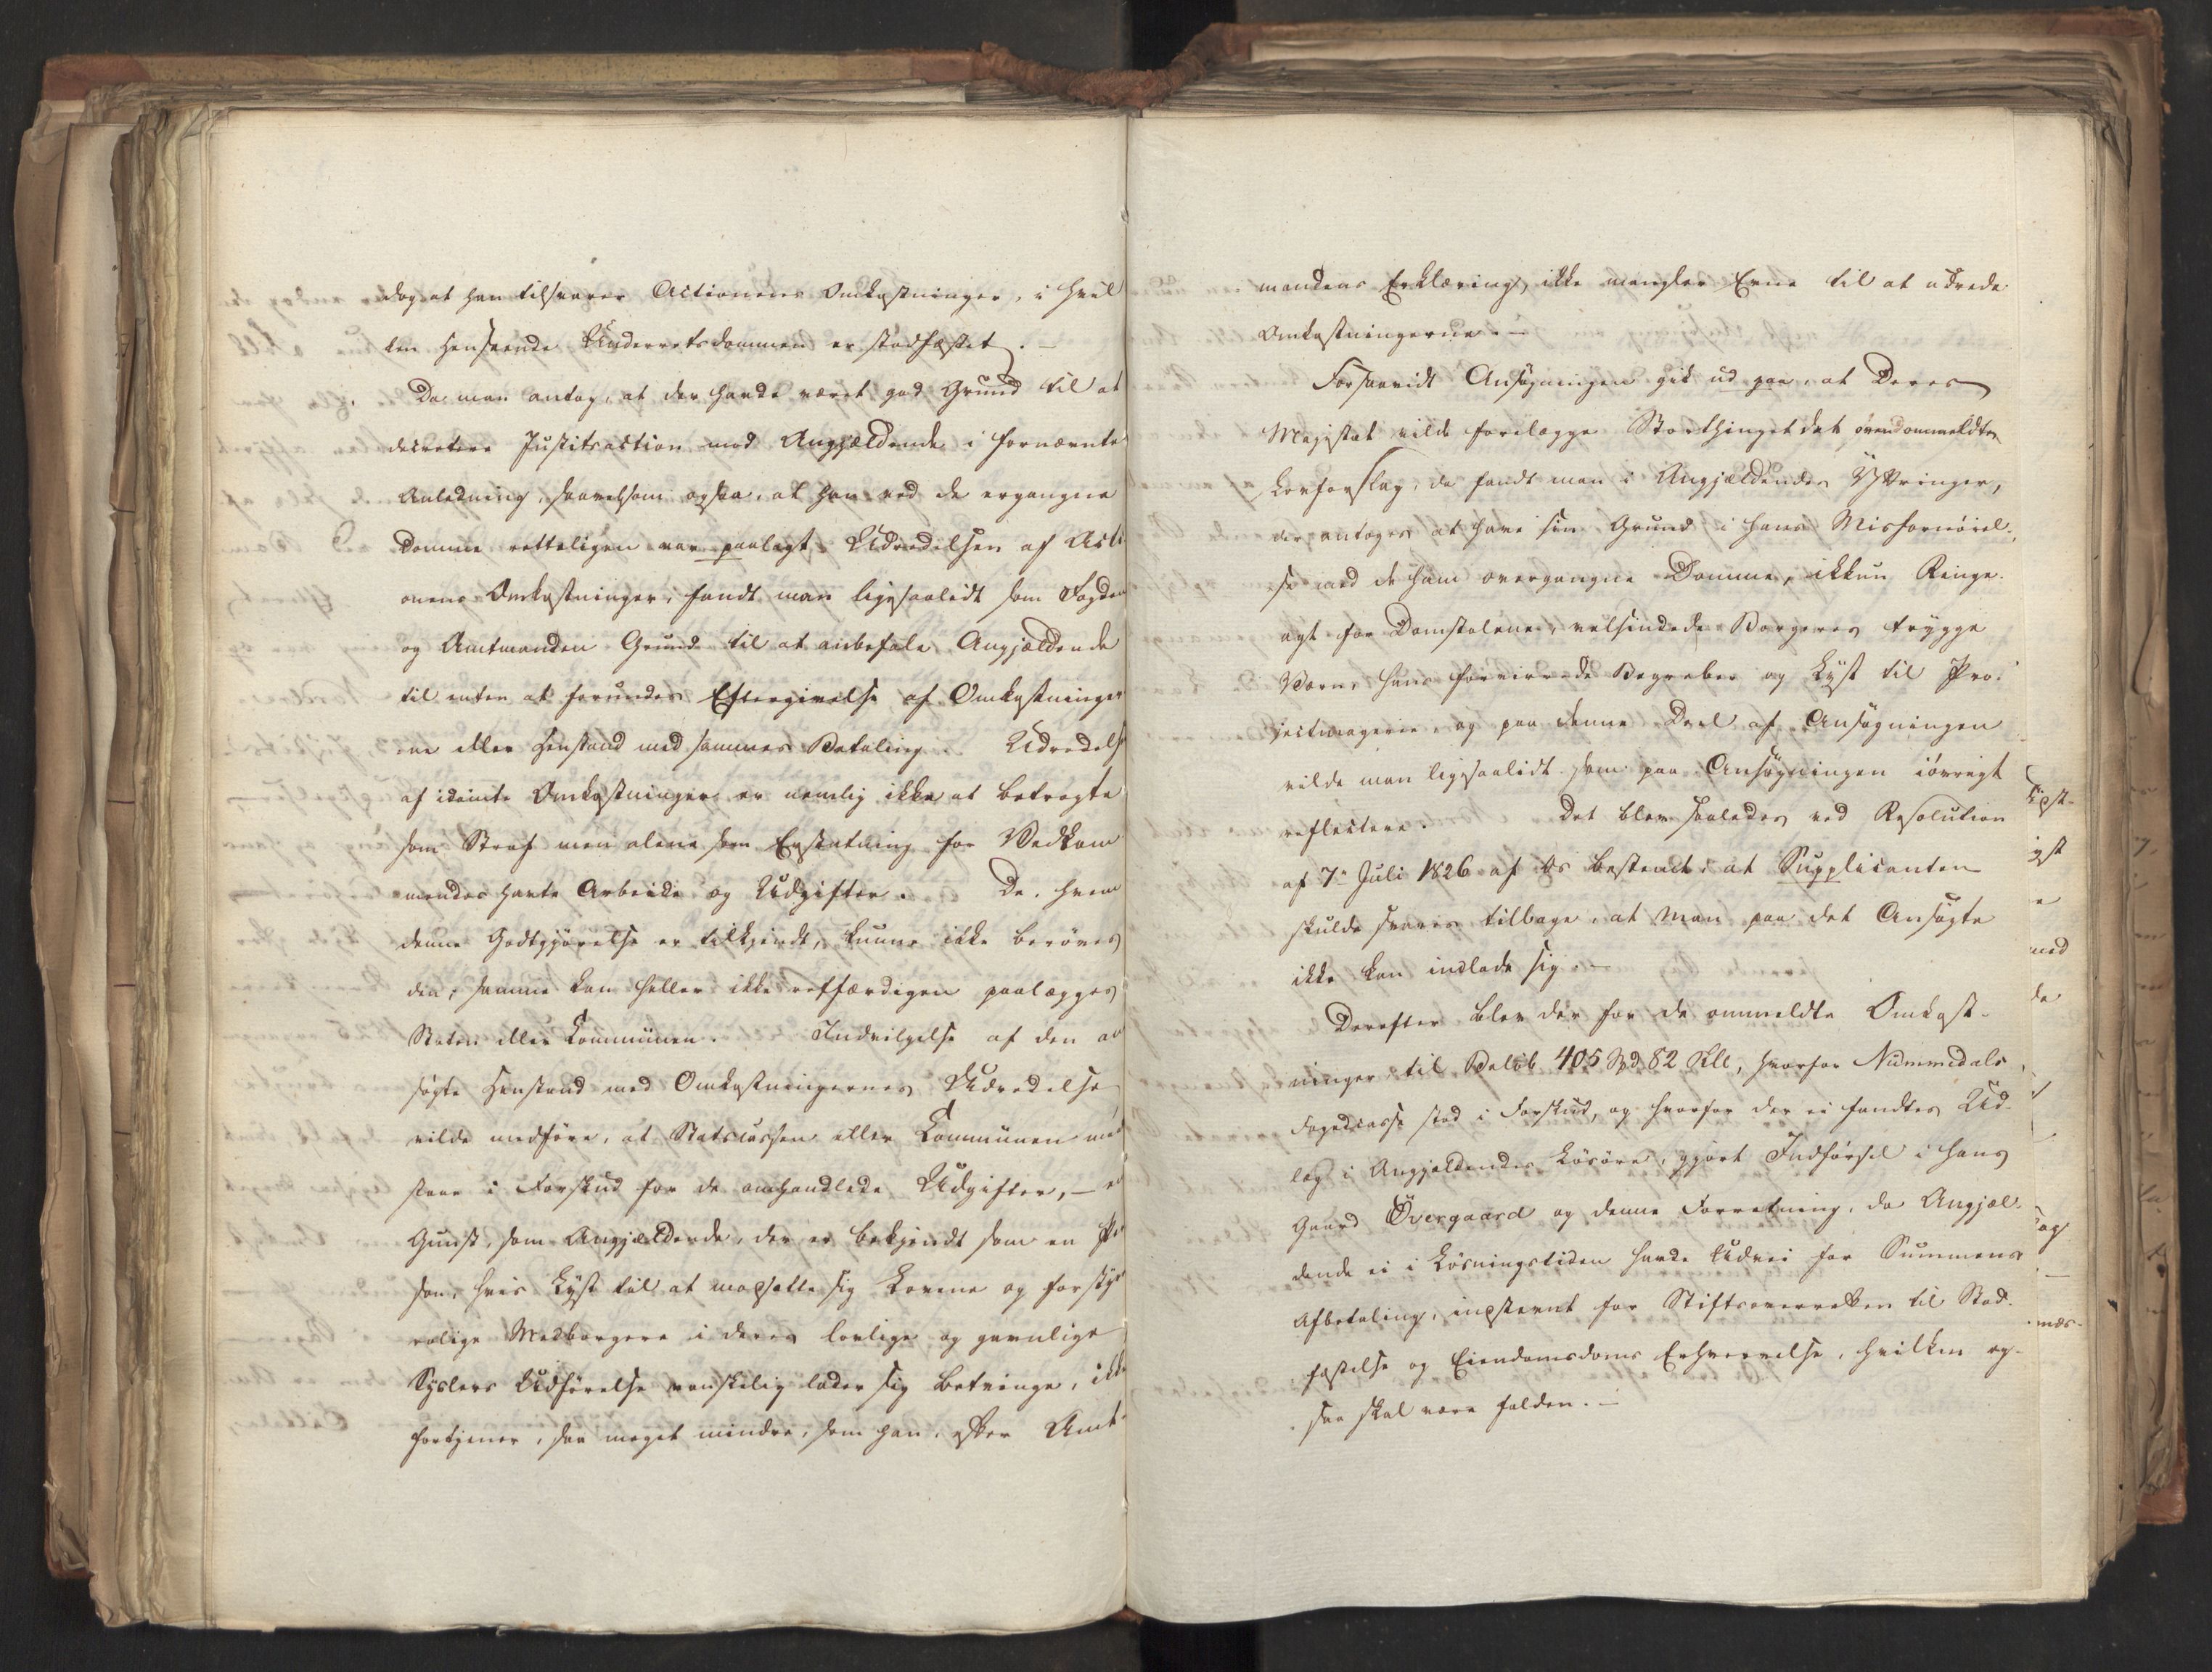 dog at han tilsvarer Actionens Omkostninger, i hvil
ken Henseende Underretsdommen er stadfæstet. —
Da man antog, at der havde været god Grund til at
decretere Justitsaction mod Angjældende i fornævnte
Anledning, saavelsom ogsaa, at han ved de ergangne
Domme retteligen var paalagt Udredelsen af Acti
onens Omkostninger, fandt man ligesaalidt som Fogden
og Amtmanden Grund til at anbefale Angjældende
til enten at forundes Eftergivelse af Omkostninger
ne eller Henstand med sammes Betaling. Udredelse
af idømte Omkostninger er nemlig ikke at betragte
som Straf men alene som Erstatning for Vedkom
mendes havte Arbeide og Udgifter. De, hvem
denne Godtgjørelse er tilkjendt, kunne ikke berøves
den; samme kan heller ikke retfærdigen paalægges
Staten eller Communen. Indvilgelse af den an
søgte Henstand med Omkostningernes Udredelse
vilde medføre, at Statscassen eller Communen maa
staae i Forskud for de omhandlede Udgifter, — en
Gunst, som Angjældende, der er bekjendt som en Per
son, hvis Lyst til at modsætte sig Lovene og forstyrre
rolige Medborgere i deres lovlige og gavnlige
Syslers Udførelse vanskelig lader sig betvinge, ikke
fortjener, saa meget mindre, som han, efter Amt-
mandens Erklæring, ikke mangler Evne til at udrede
Omkostningerne. —
Forsaavidt Ansøgningen gik ud paa, at Deres
Majestæt vilde forelægge Storthinget det ovenommeldte
Lovforslag, da fandt man i Angjældendes Yttringer,
der antages at have sin Grund i hans Misfornøiel-
se med de ham overgangne Domme, ikkun Ringe-
agt for Domstolene, velsindede Borgeres trygge
Værn, hans forvirrede Begreber og Lyst til Pro-
jectmagerie, og paa denne Deel af Ansøgningen
vilde man ligesaalidt som paa Ansøgningen iøvrigt
reflectere. Det blev saaledes ved Resolution
af 7de Juli 1826 af Os bestemt, at Supplicanten
skulde svares tilbage, at man paa det Ansøgte
ikke kan indlade sig. —
Derefter blev der for de ommeldte Omkost-
ninger til Beløb 405 Spd 82 Skll, hvorfor Nummedals
Fogedcasse stod i Forskud, og hvorfor der ei fandtes Ud-
læg i Angjældendes Løsøre, gjort Indførsel i hans
Gaard Övergaard og denne Forretning, da Angjæl-
dende ei i Løsningstiden havde Udvei for Summens
Afbetaling, indstevnt for Stiftsoverretten til Stad-
fæstelse og Eiendomsdoms Erhvervelse, hvilken og-
saa skal være falden. —